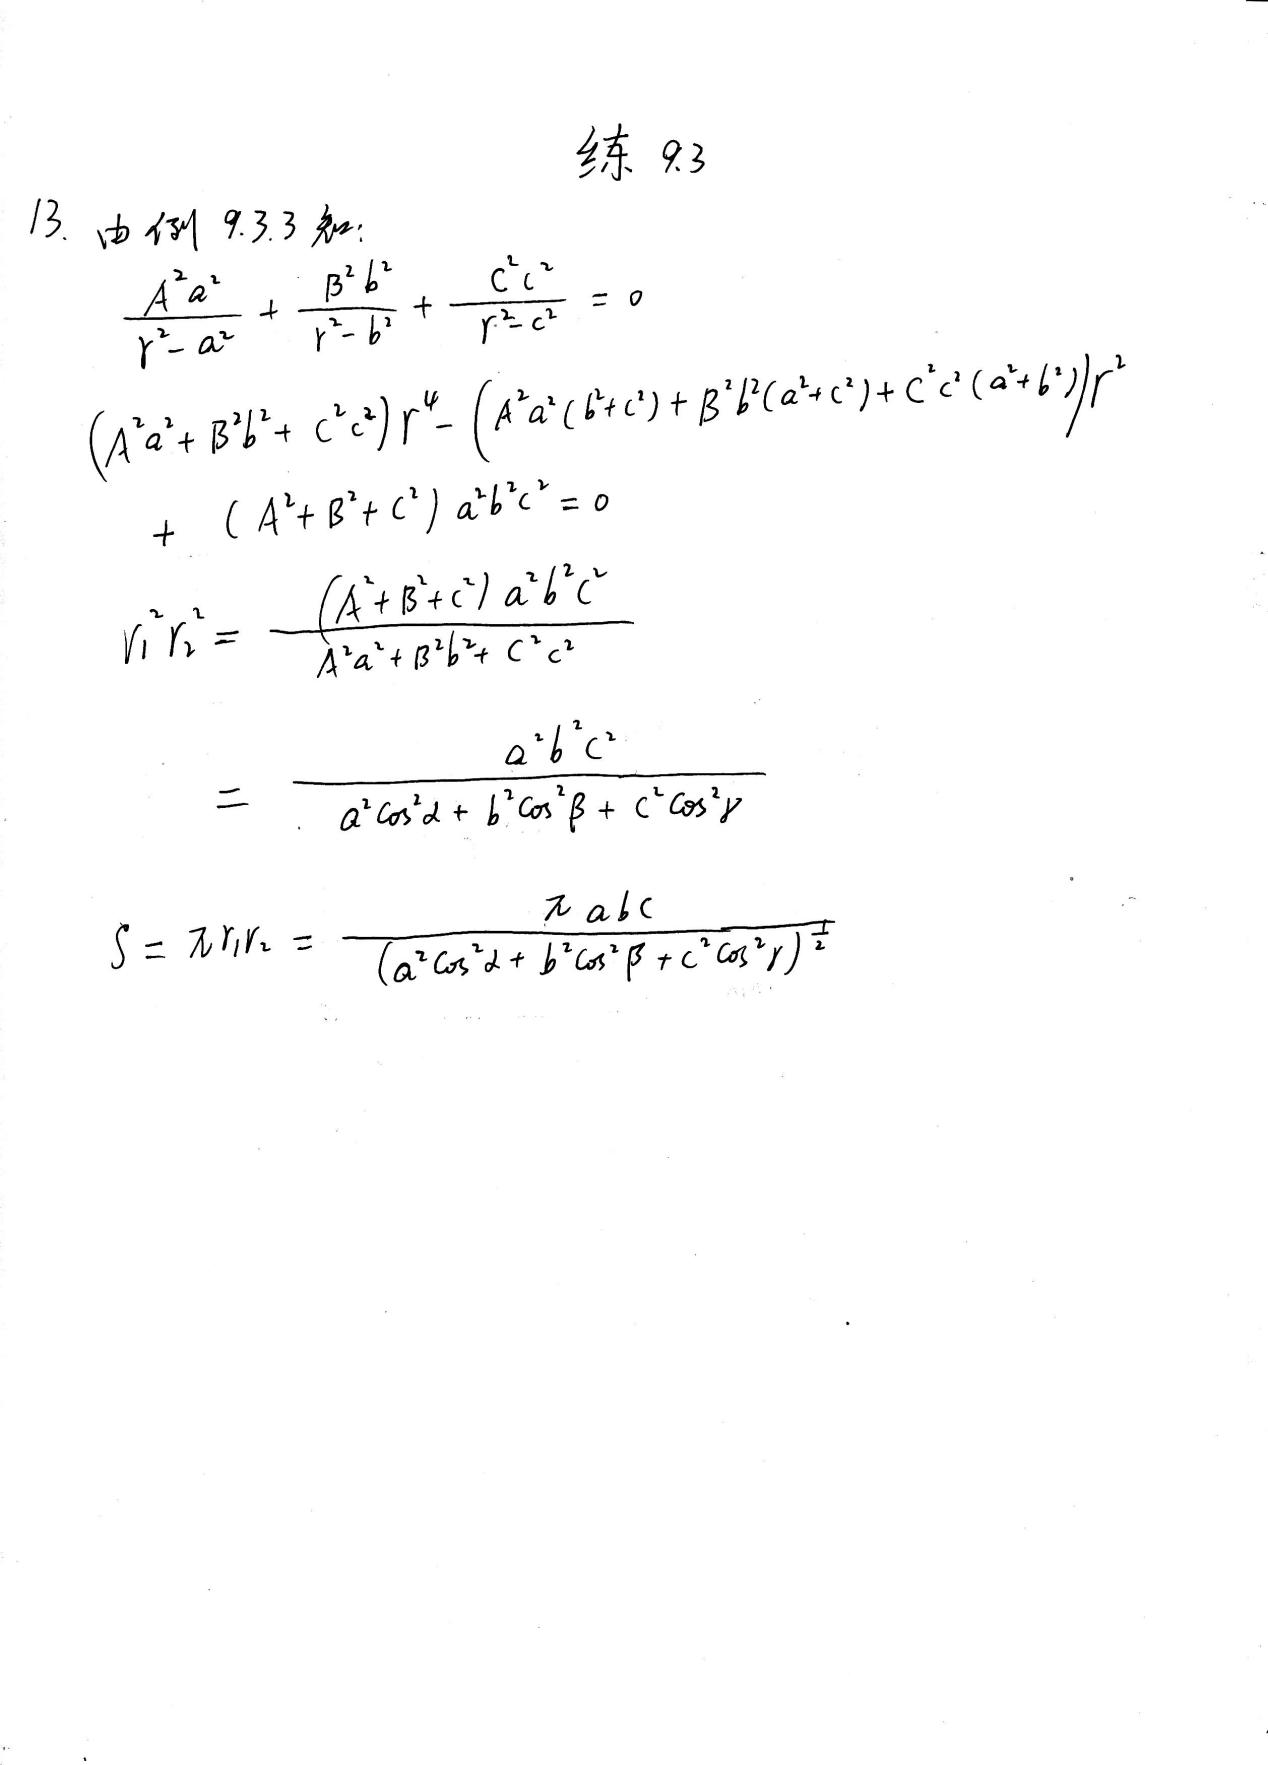 练 9.3
13. 由例 9.3.3 知:
A²a²/(r²-a²) + B²b²/(r²-b²) + C²c²/(r²-c²) = 0
(A²a²+B²b²+C²c²)r⁴-(A²a²(b²+c²)+B²b²(a²+c²)+C²c²(a²+b²))r²
+ (A²+B²+C²)a²b²c²=0
r₁²r₂² = (A²+B²+C²)a²b²c²/(A²a²+B²b²+C²c²)
= a²b²c²/(a²cos²α+b²cos²β+c²cos²γ)
S = πr₁r₂ = πabc/(a²cos²α+b²cos²β+c²cos²γ)^(1/2)